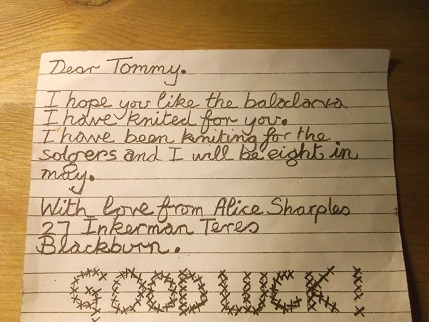 Dear Tommy.
I hope you like the balaclarva
I have knited for you.
I have been kniting for the
solgers and I will be eight in
may.
With love from Alice Sharples
27 Inkerman Teres
Blackburn.
GOODLUCK!